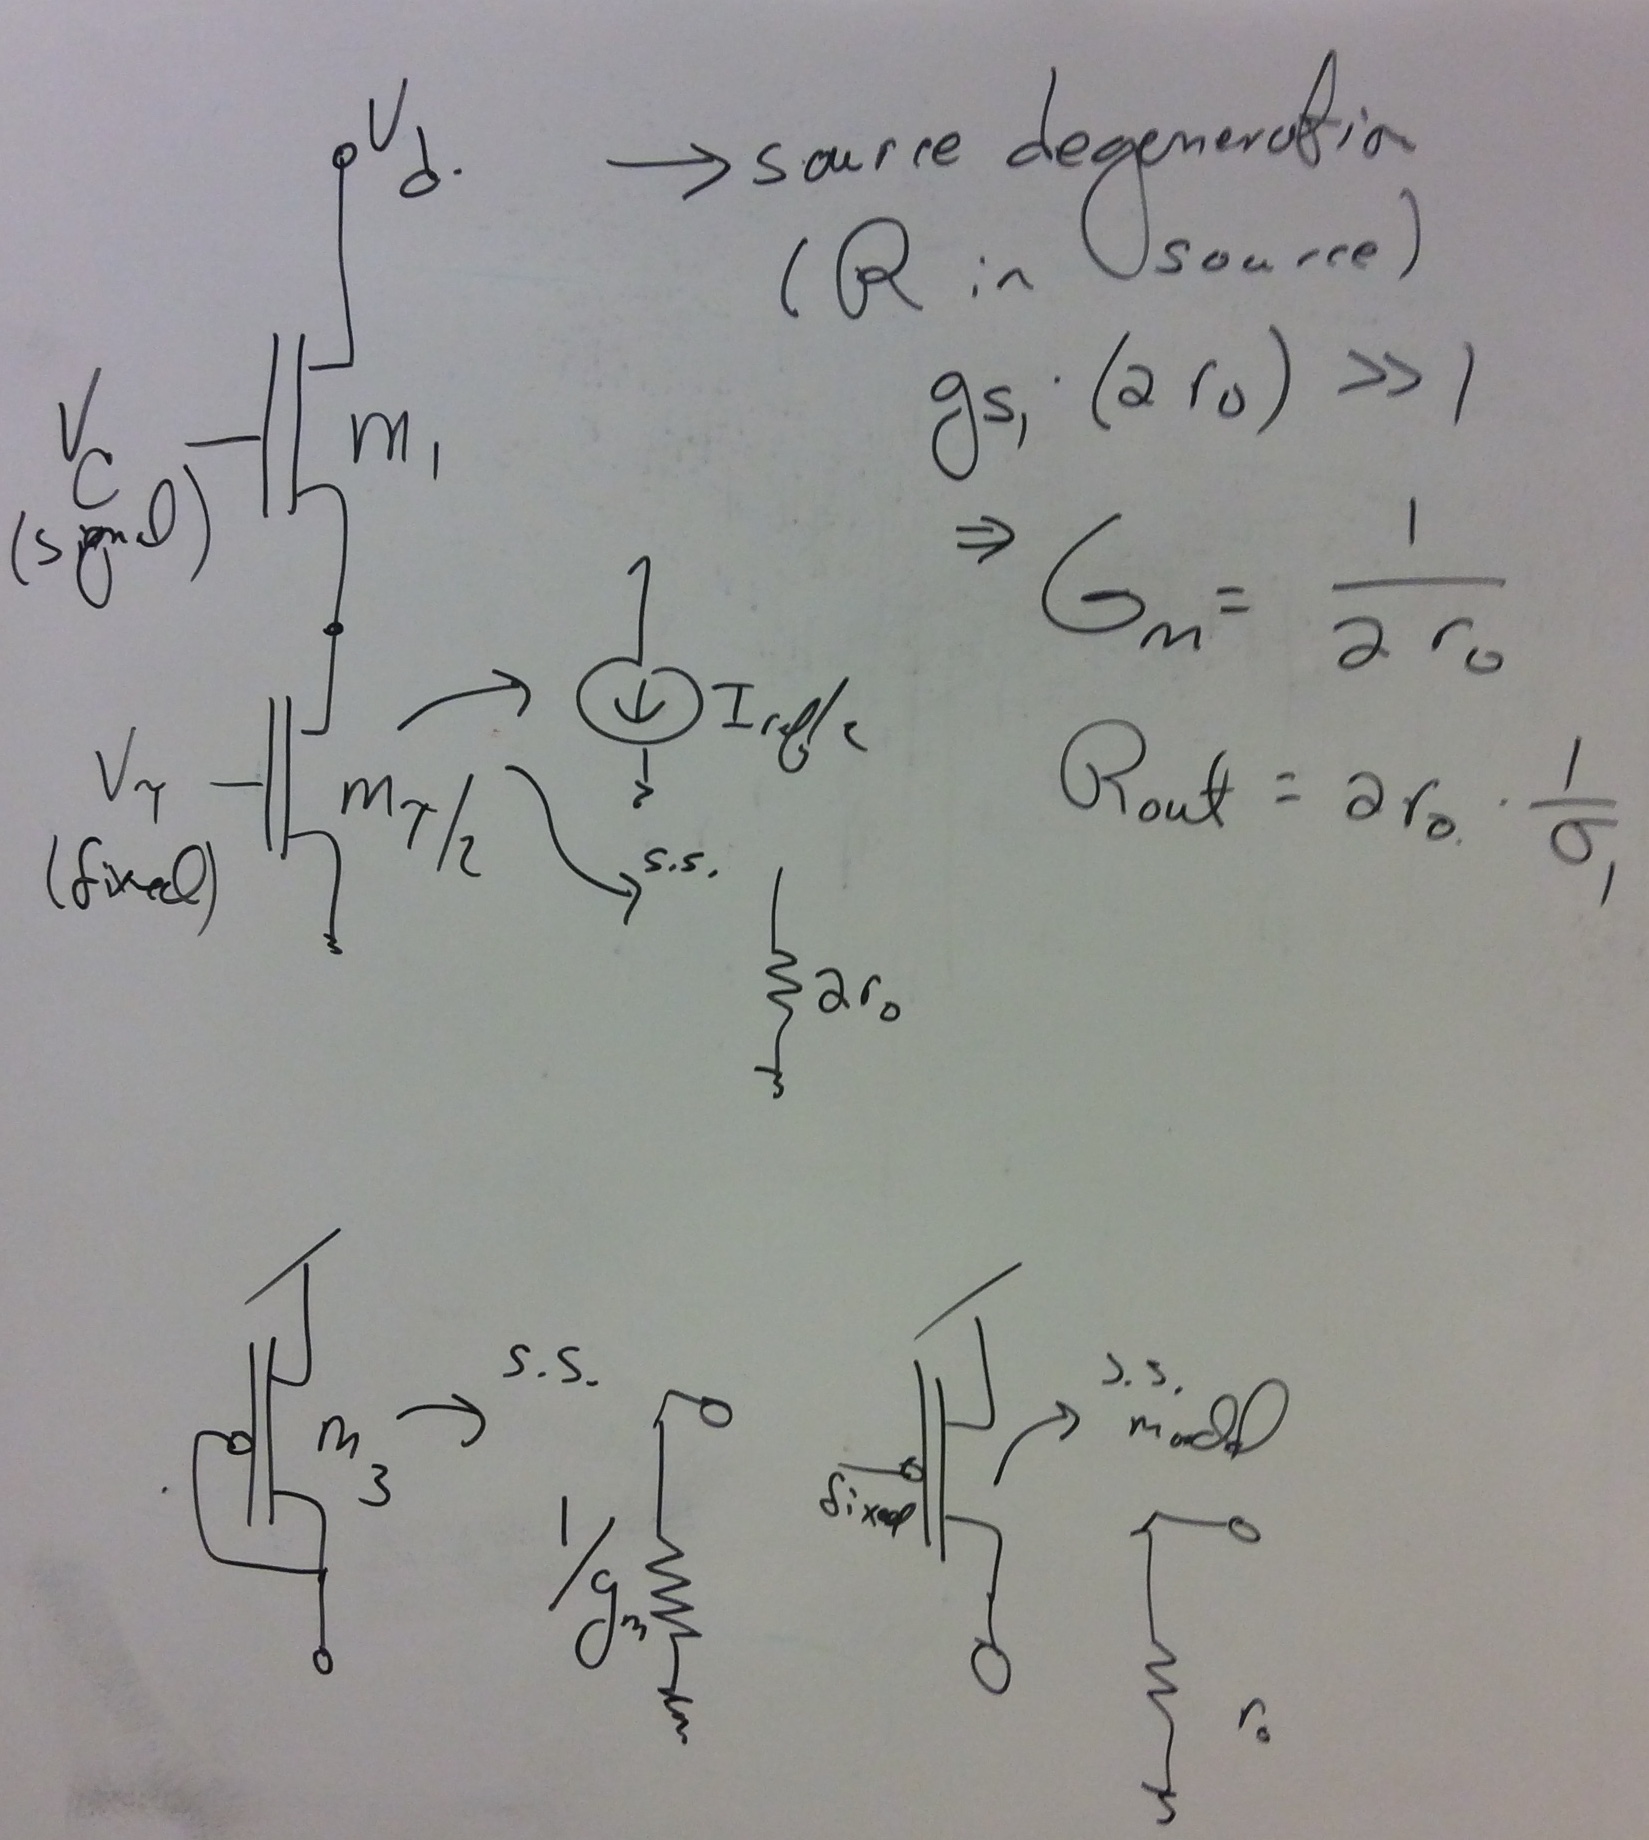 Vd.
→ source degeneration
(R in source)
gs₁ · (2 r₀) >> 1
⇒ Gm = 1 / 2 r₀
Rout = 2r₀ · 1/σ₁
VC
(signal)
M₁
Iref/2
Vτ
(fixed)
Mτ/2
s.s.
2r₀
M3
s.s.
1/gm
fixed
s.s.
model
r₀